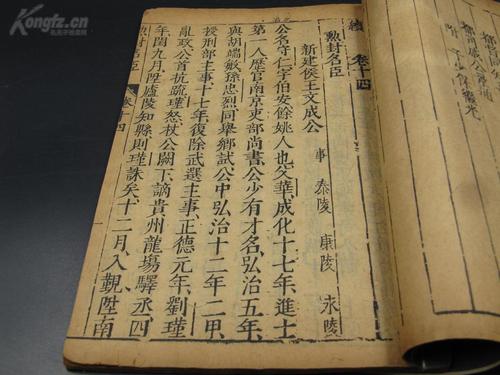 續 卷十四
勲封名臣
新建侯王文成公 事 泰陵 康陵 永陵
公名守仁字伯安餘姚人也父華成化十七年進士
第一人歷官南京吏部尚書公少有才名弘治五年
與胡端敏孫忠烈同舉鄉試公中弘治十二年二甲
授刑部主事十七年復除武選主事正德元年劉瑾
亂政公首抗疏瑾怒杖公闕下謫貴州龍場驛丞四
年閏九月陞廬陵知縣則瑾誅矣十二月入覲陞南
勲封名臣 卷十四
Kongfz.cn
孔夫子旧书网